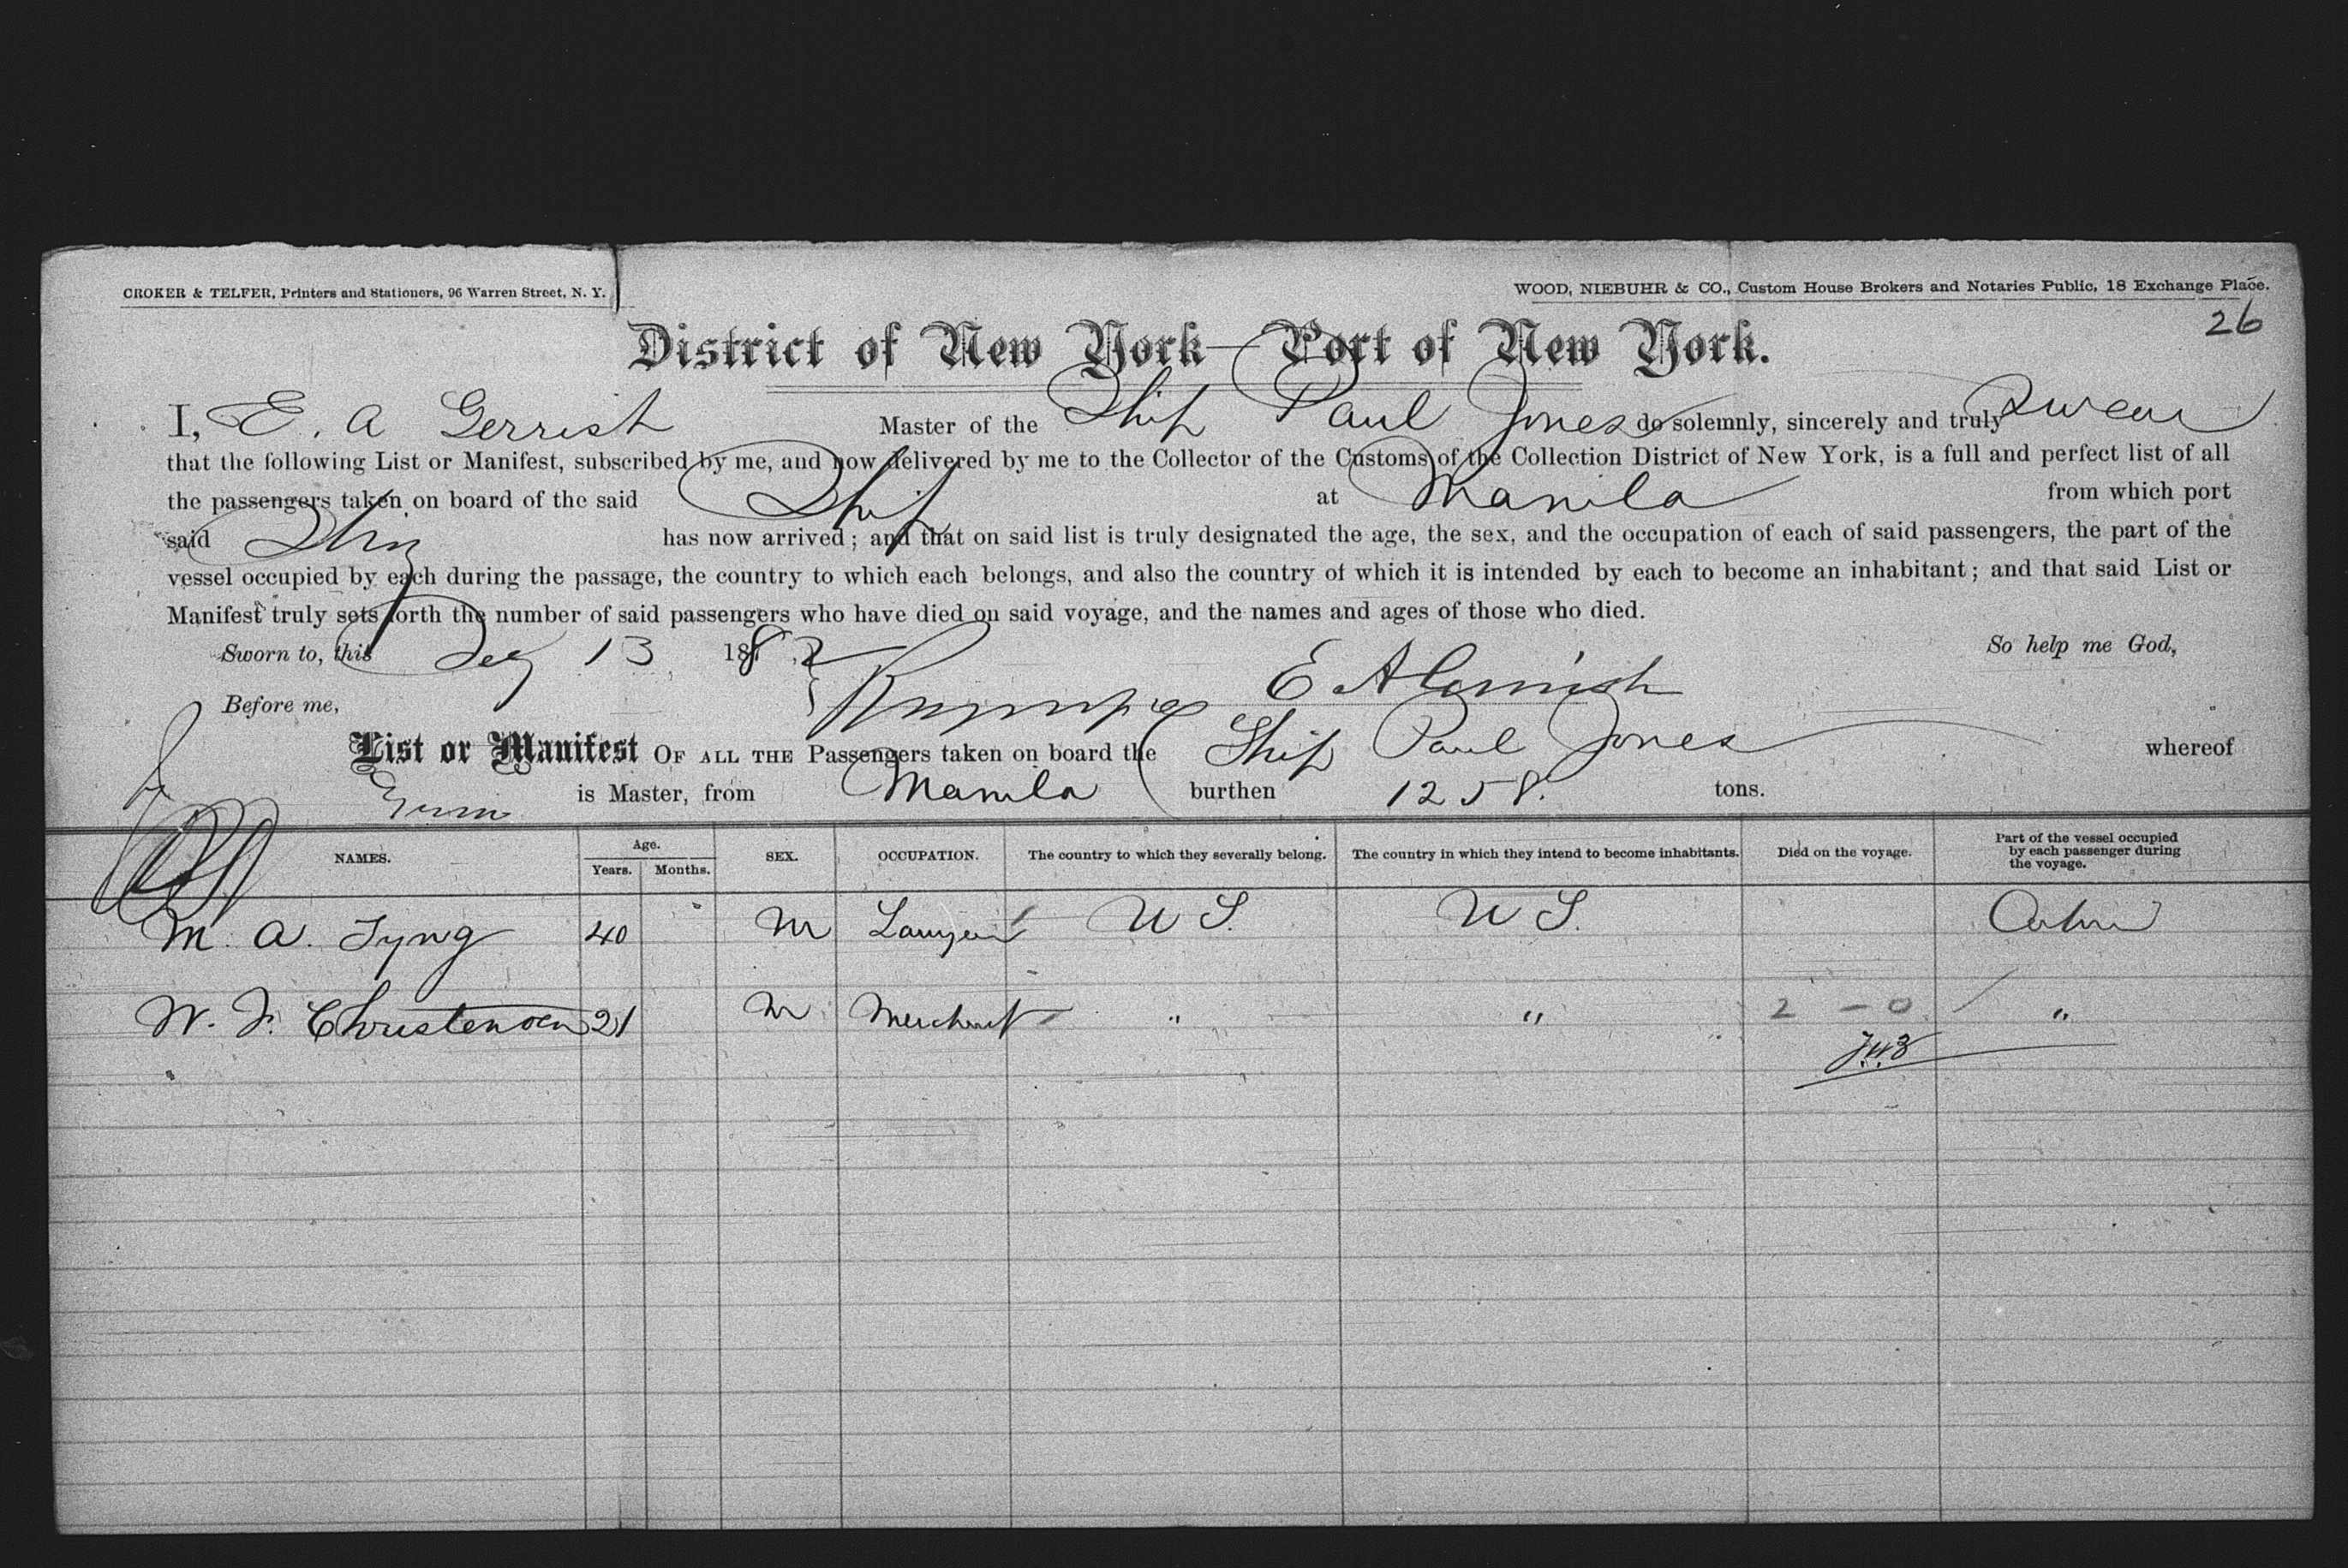 CROKER & TELFER, Printers and Stationers, 96 Warren Street, N. Y.
WOOD, NIEBUHR & CO., Custom House Brokers and Notaries Public, 18 Exchange Place.
26
District of New York—Port of New York.
I, E. A Gerrish Master of the Ship Paul Jones do solemnly, sincerely and truly swear
that the following List or Manifest, subscribed by me, and now delivered by me to the Collector of the Customs of the Collection District of New York, is a full and perfect list of all
the passengers taken on board of the said Ship at Manila from which port
said Ship has now arrived; and that on said list is truly designated the age, the sex, and the occupation of each of said passengers, the part of the
vessel occupied by each during the passage, the country to which each belongs, and also the country of which it is intended by each to become an inhabitant; and that said List or
Manifest truly sets forth the number of said passengers who have died on said voyage, and the names and ages of those who died.
Sworn to, this 13 1882 So help me God,
Before me, E A Gerrish
List or Manifest OF ALL THE Passengers taken on board the Ship Paul Jones whereof
is Master, from Manila burthen 1258. tons.
NAMES. Age. Years. Months. SEX. OCCUPATION. The country to which they severally belong. The country in which they intend to become inhabitants. Died on the voyage. Part of the vessel occupied by each passenger during the voyage.
M. A. Tyng 40 M Lawyer U S. U S. Cabin
W. F. Christensen 21 M Merchant " " 2 - 0 "